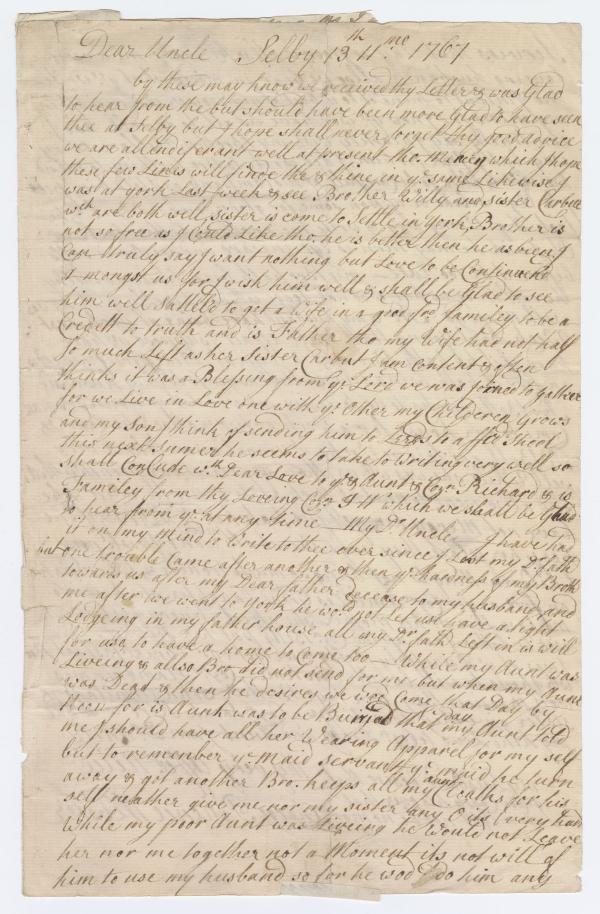 Dear Uncle Selby 13th 11mo 1767
by these may know we received thy Letter & was Glad
to hear from the but should have been more Glad to have seen
thee at Selby but I hope shall never forget thy good advice
we are all endiferant well at present tho. which I hope
these few Lines will finde the & thine in ye same Likewise I
was at york Last week & see Brother Willy and sister Carbutt
wch are both well sister is come to settle in york Brother is
not so free as I Could Like tho. he is better then he as bien I
Can truly say I want nothing but Love to be Continued
a mongst us for I wish him well & shall be Glad to see
him well Sattel'd to get a wife in a good frd familey to be a
Credett to truth and is Father tho my wife had not half
so much Left as her Sister Carbut I am Content & often
thinks it was a Blessing from ye Lord we was joined to gather
for we Live in Love one with ye Other my Childeren Grows
and my son I think of sending him to Leeds to a ffrd School
this next Sumer he seems to take to Writing very well so
shall Conclude wth Dear Love to ye & Aunt & Cozn Richard & is
Familey from thy Loveing Cozn I H which we shall be Glad
to hear from ye at any time — My Dr Uncle I have had
it on my Mind to Write to thee ever since I Last my Dr fath
but one trouble Came after another & then ye hardness of my Broth
towards us after my Dear father decease to my husband and
me after we went to york he wod not Let use have a night
Lodgeing in my father house all my Dr fath Left in is will
for use to have a home to Come too — While my Aunt was
Liveing & allso Bro did not send for me but when my Aunt
was Dead & then he desires we wod Come that Day by
Noon for is Aunt was to be Buried that day my Aunt told
me I should have all her Wearing Apparel for my self
but to remember ye Maid servant ye maid he turn
away & got another Bro. keeps all my aunt Cloaths for his
self neather give me nor my sister any O its very hard
While my poor Aunt was Liveing he would not Leave
her nor me together not a Moment its not will of
him to use my husband so for he wod do him any